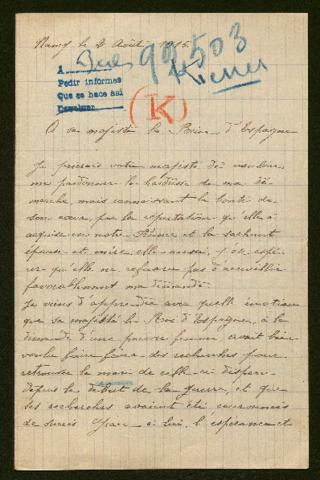 Nancy le 2 Août 1915
99.503
A
Pedir informes
Que se hace así
Kiener
(K)
A sa majesté la Reine d'Espagne
Je prierais votre majesté de vouloir
me pardonner la hardiesse de ma dé-
marche, mais connaissant la bonté de
son cœur, par la réputation qu'elle a
acquise en notre France et la sachant
épouse et mère elle-aussi, j'ose espé-
rer qu'elle ne refusera pas d'accueillir
favorablement ma demande.
Je viens d'apprendre avec quelle émotion
que sa majesté le Roi d'Espagne, à la
demande d'une pauvre femme, avait bien
voulu faire faire des recherches pour
retrouver le mari de celle-ci disparu
depuis le début de la guerre, et que
les recherches avaient été couronnées
de succès grâce à lui, l'espérance et